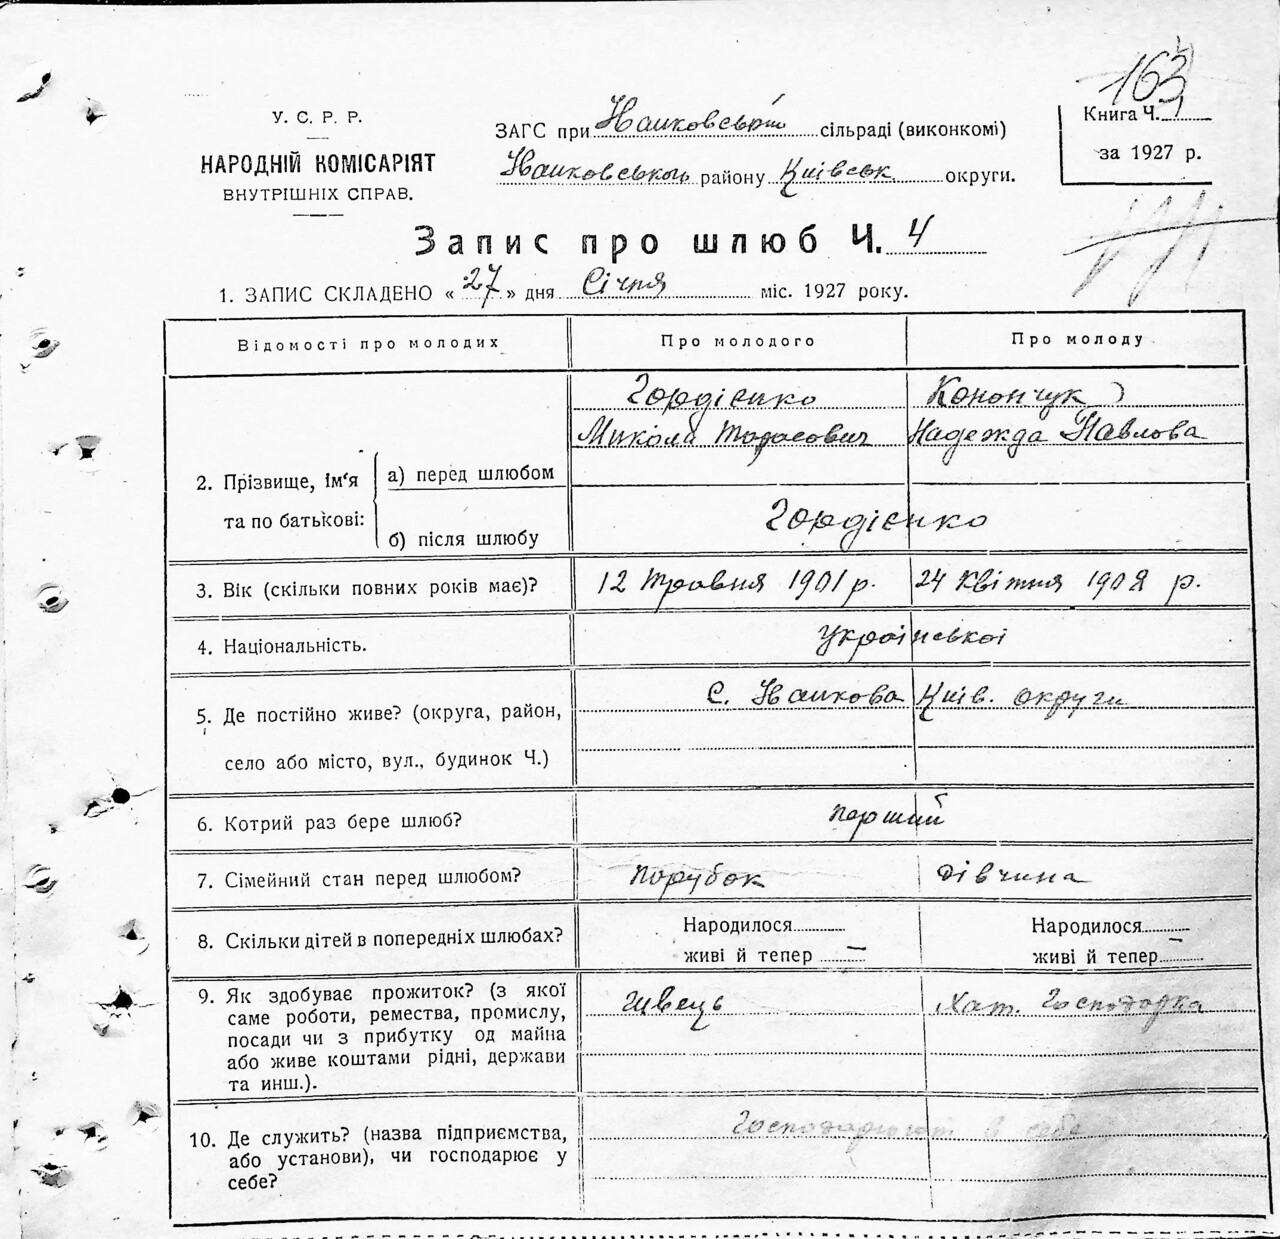 163
У. С. Р. Р.
НАРОДНІЙ КОМІСАРІЯТ
ВНУТРІШНІХ СПРАВ.
ЗАГС при Іванковській сільраді (виконкомі)
Іванковського району Київськ. округи.
Книга Ч. 1
за 1927 р.
Запис про шлюб Ч. 4
1. ЗАПИС СКЛАДЕНО « 27 » дня Січня міс. 1927 року.
Відомості про молодих Про молодого Про молоду
Гордієнко Конончук
Микола Тарасович Надежда Павлова
2. Прізвище, ім'я та по батькові:
а) перед шлюбом
б) після шлюбу
Гордієнко
3. Вік (скільки повних років має)? 12 Травня 1901 р. 24 Квітня 1902 р.
4. Національність. Української
5. Де постійно живе? (округа, район, С. Іванкова Київ. округи
село або місто, вул., будинок Ч.)
6. Котрий раз бере шлюб? перший
7. Сімейний стан перед шлюбом? Парубок Дівчина
8. Скільки дітей в попередніх шлюбах? Народилося Народилося
живі й тепер — живі й тепер —
9. Як здобуває прожиток? (з якої Швець Хат. Господарка
саме роботи, ремества, промислу,
посади чи з прибутку од майна
або живе коштами рідні, держави
та инш.).
10. Де служить? (назва підприємства, в себе
або установи), чи господарює у
себе?